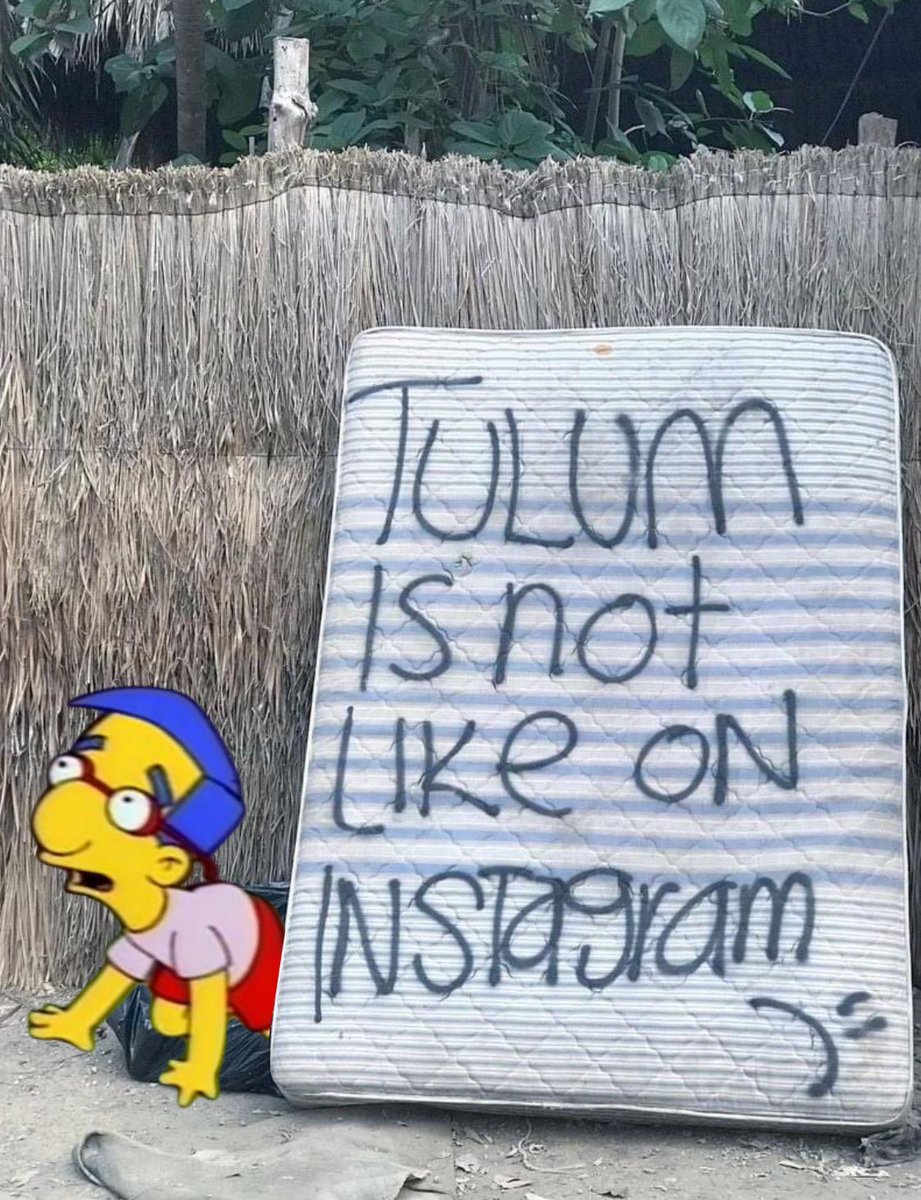 TULUM
IS not
LIKe ON
INSTagram